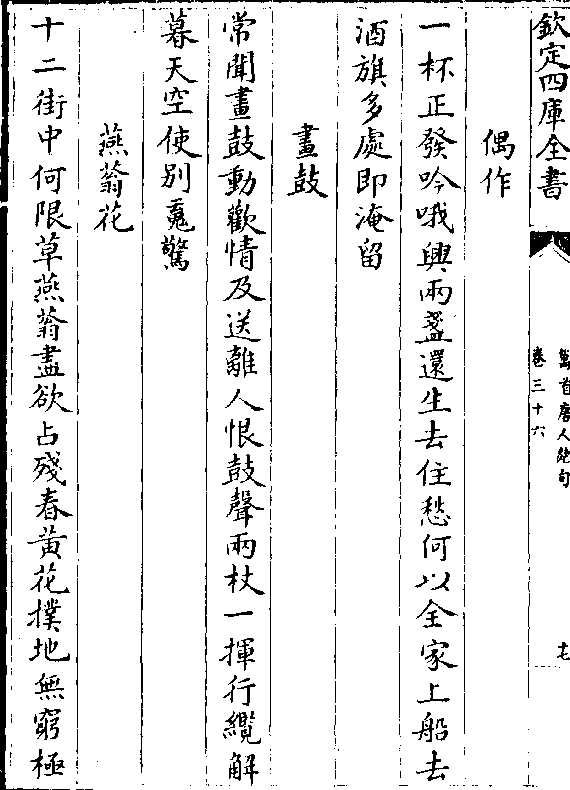 欽定四庫全書
萬首唐人絶句
卷三十六
十七
偶作
一杯正發吟哦興兩盞還生去住愁何以全家上船去
酒旗多處即淹留
畫鼓
常聞畫鼓動歡情及送離人恨鼓聲兩杖一揮行纜解
暮天空使别䰟驚
燕蓊花
十二街中何限草燕蓊盡欲占殘春黄花撲地無窮極